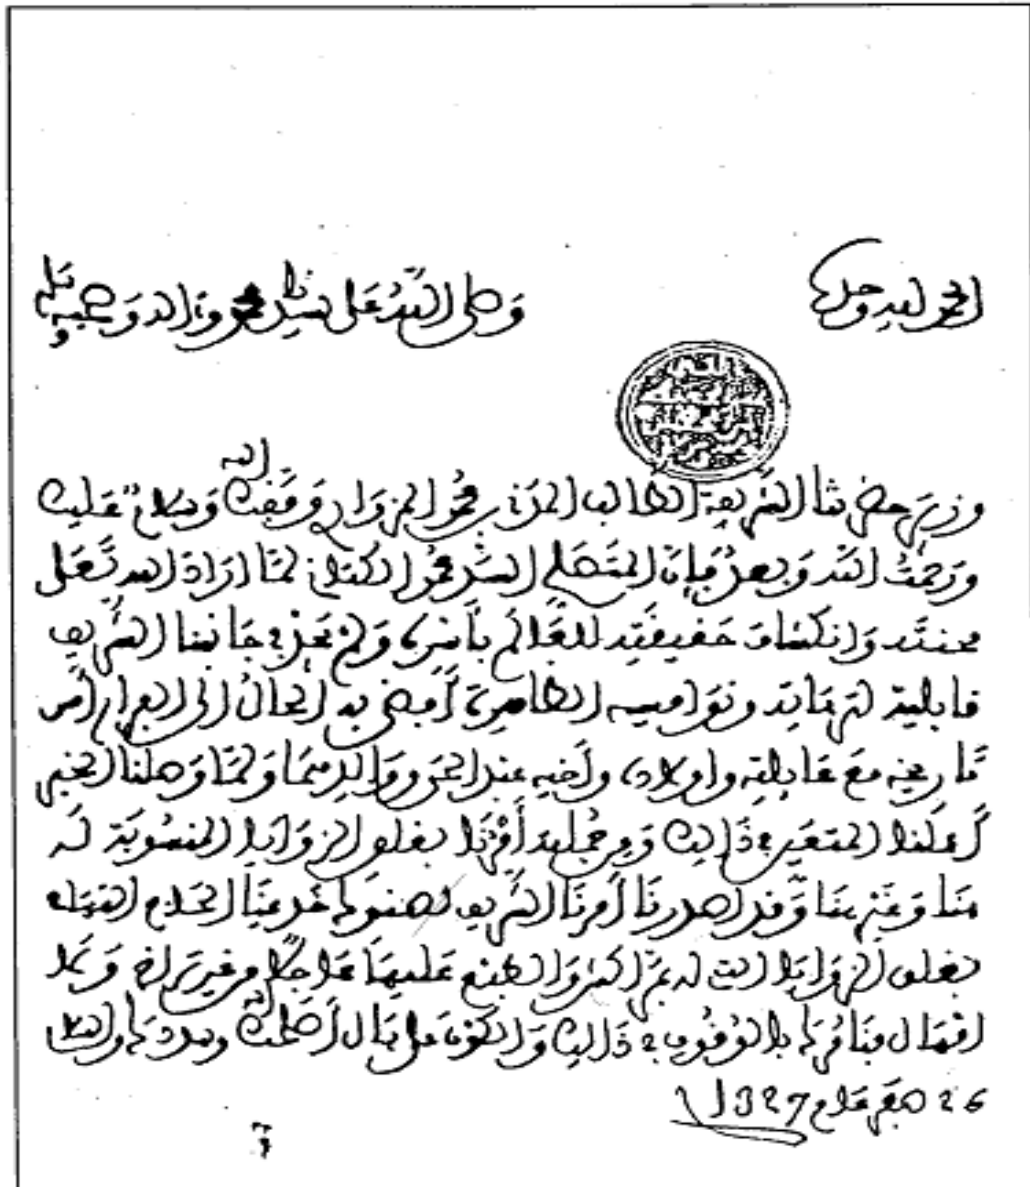 الحمد لله وحده وصلى الله على سيدنا محمد وءاله وصحبه وسلم
وزير حضرتنا الشريفة الطالب المدني محمد المزوار وفقك الله وسلام عليك
ورحمت الله وبعد فإن المتصلح الشر محمد الكتاني لما اراد الله تعلى
محنته وانكشاف حقيقته للعالم بأسره ولم تجد في جانبنا الشريف
قابلية لترهاته ونواميسه الظاهرة أفضى به الحال الى الفرار أمس
تاريخه مع عايلته واولاده وأخيه عبد الحي ووالدهما ولما وصلنا الخبر
أعملنا المتعين في ذالك ومن جملته أمرنا بغلق الزوايا المنسوبة له
هنا وغيرهنا وقد اصدرنا أمرنا الشريف لصنوكم خديمنا الحاج التهام
بغلق الزوايا التي له بمراكش والطبع عليها عاجلا من غير تراخ ولا
اهمال فنامركم بالوقوف في ذالك والكون على بال أصلحك الله وسددكم والسلام
26 صفر عام 1327